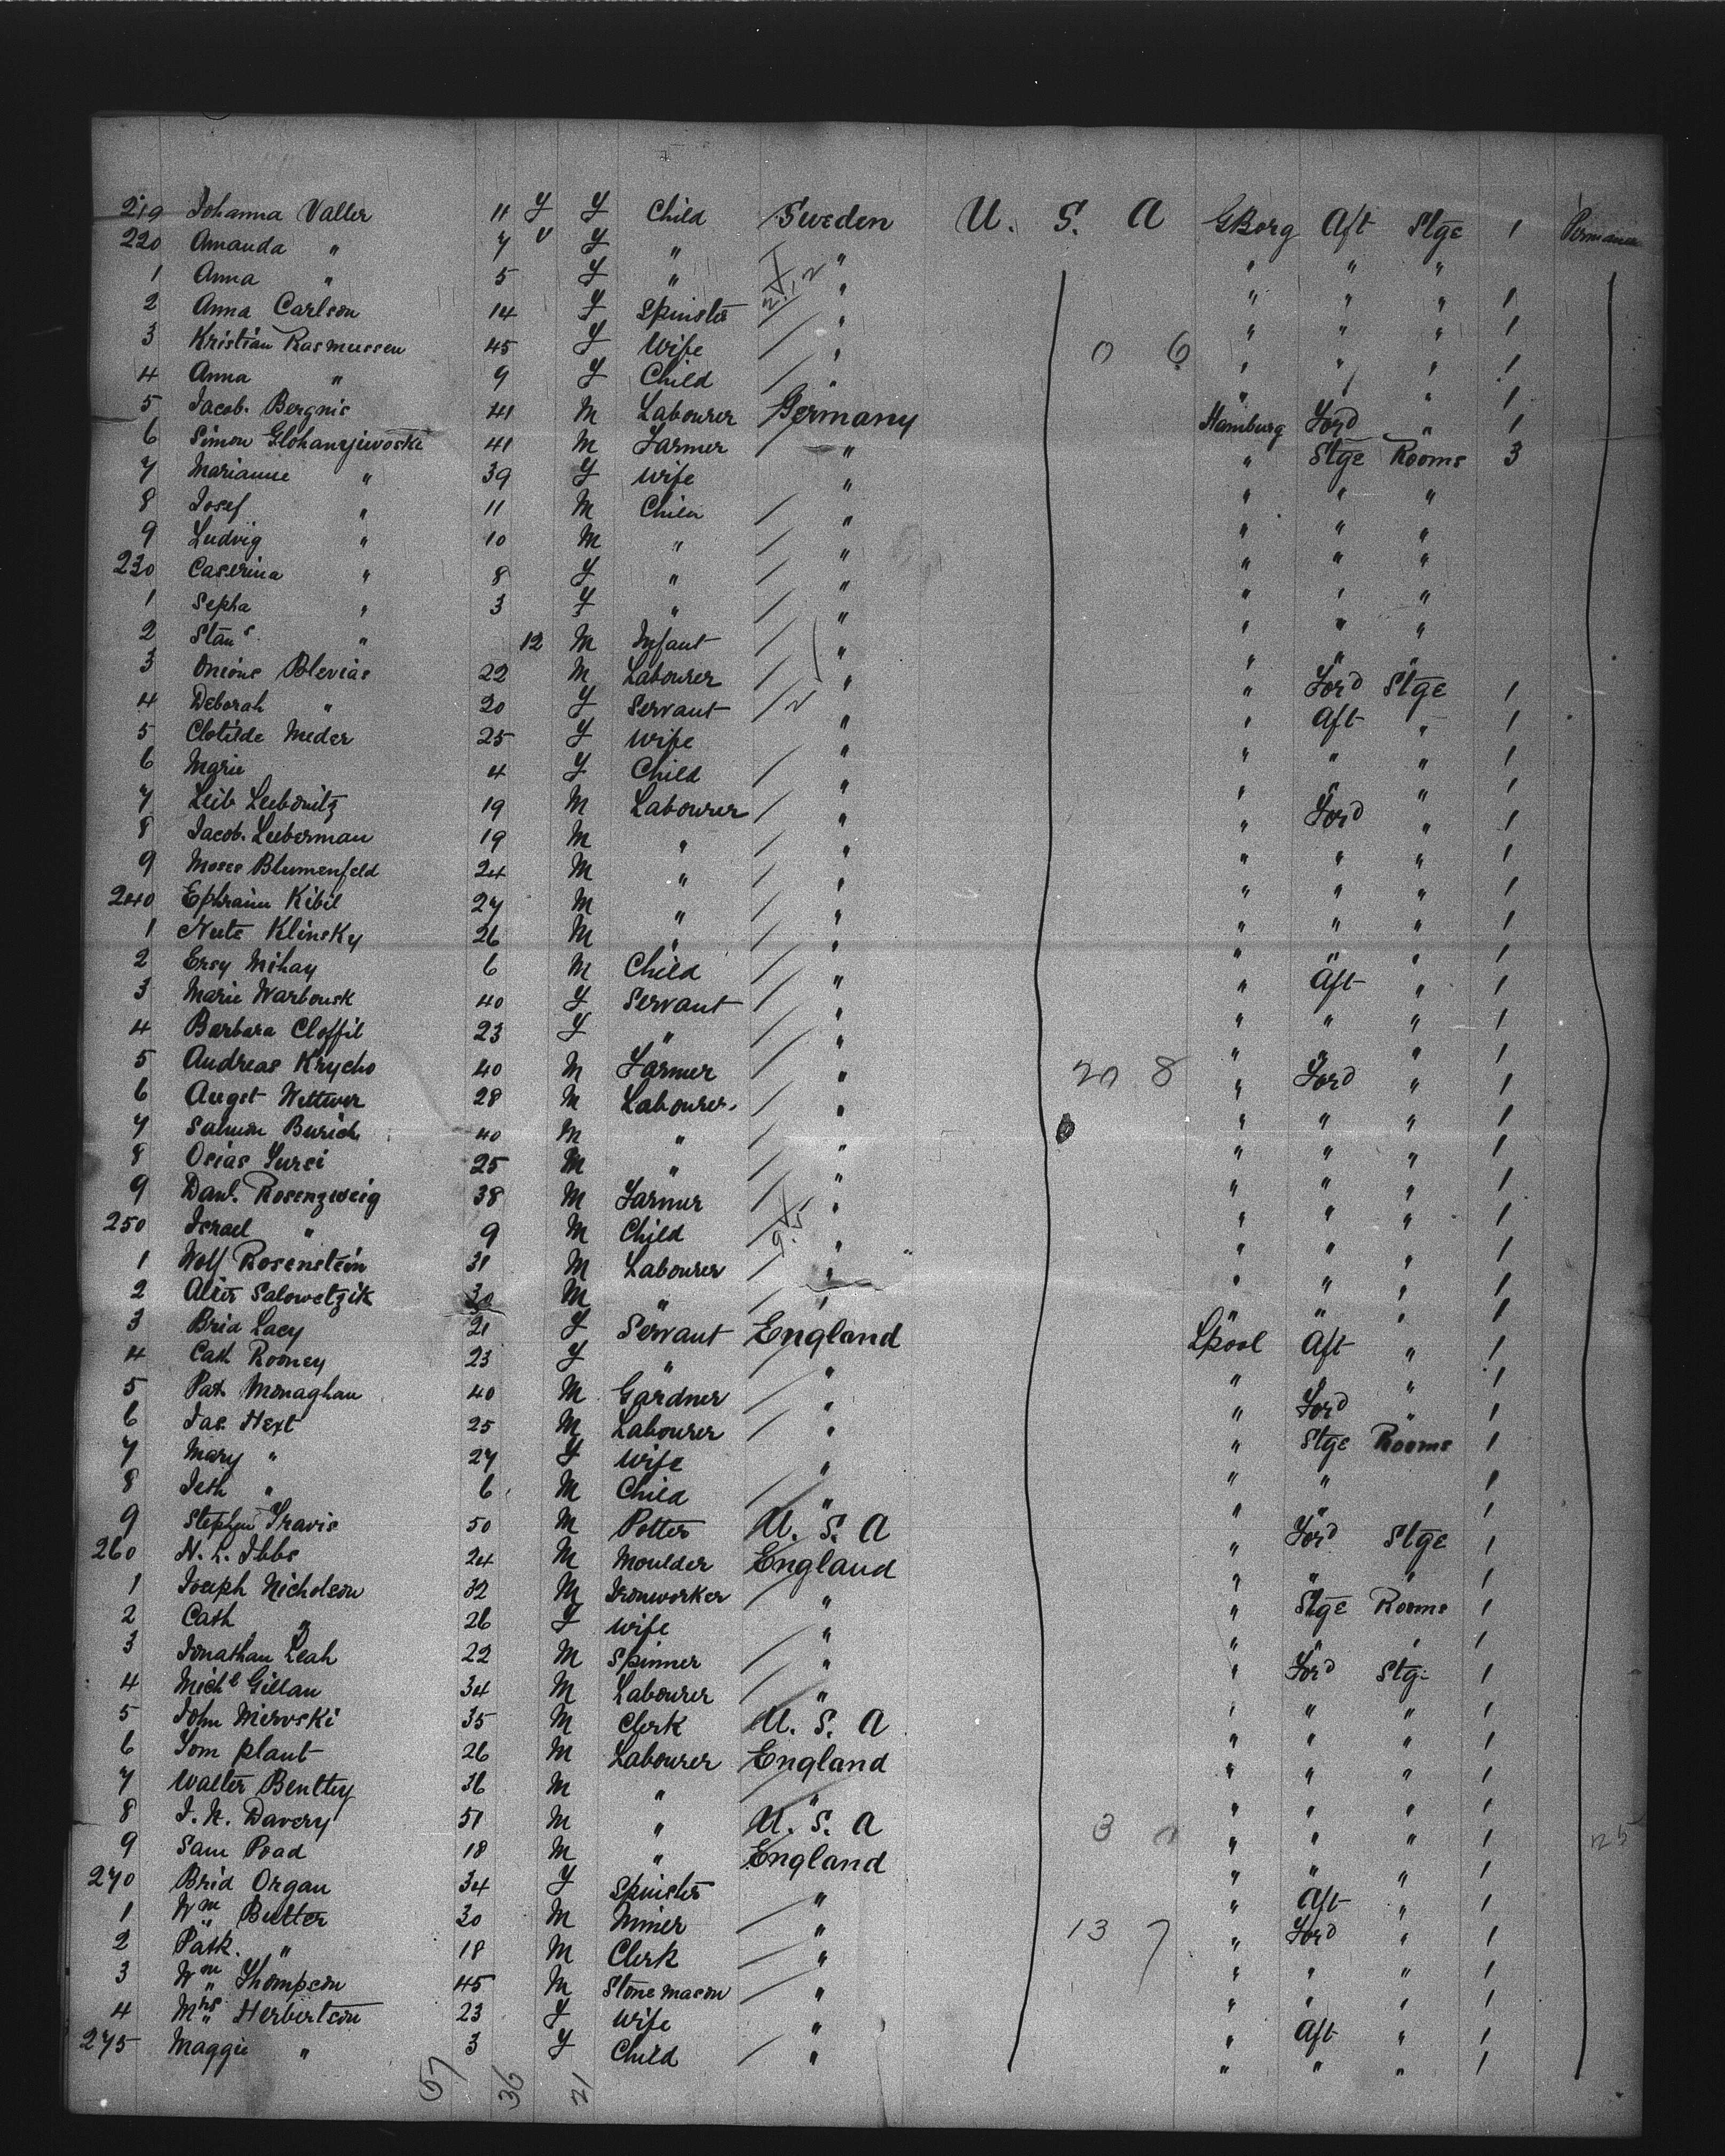 219 Johanna Valler 11 F F Child Sweden U. S. A GBorg Aft Stge 1
220 Amanda " 7 F " " " " "
1 Anna " 5 F " " " " " 1
2 Anna Carlson 14 F Spinster " " " " 1
3 Kristian Rasmussen 45 F Wife " 0 6 " " " 1
4 Anna " 9 F Child " " " " 1
5 Jacob. Bergnis 41 M Labourer Germany Hamburg Ford " 1
6 Simon 41 M Farmer " " Stge Rooms 3
7 Marianne " 39 F Wife " " " "
8 Josef " 11 M Child " " " "
9 Ludvig " 10 M " " " " "
230 Caserina " 8 F " " " " "
1 Sepha " 3 F " " " " "
2 Stans " 12 M Infant " " " "
3 Onions Blevias 22 M Labourer " " Ford Stge 1
4 Deborah " 20 F Servant " " Aft " 1
5 Clotilde Meder 25 F Wife " " " " 1
6 Marie 4 F Child " " " " 1
7 Leib Leibovitz 19 M Labourer " " Ford " 1
8 Jacob. Lieberman 19 M " " " " " 1
9 Moses Blumenfeld 24 M " " " " " 1
240 Ephraim Kibil 27 M " " " " " 1
1 Nute Klinsky 26 M " " " " " 1
2 Ersy Mihay 6 M Child " " Aft " 1
3 Marie Warbousk 40 F Servant " " " " 1
4 Barbara Cloffil 23 F " " " " " 1
5 Andreas Krycho 40 M Farmer " 20 8 " Ford " 1
6 Augst Wettwer 28 M Labourer. " " " " 1
7 Salmon Burich 40 M " " " " " 1
8 Osias Fursi 25 M " " " " " 1
9 Danl. Rosenzweig 38 M Farmer " " " " 1
250 Israel " 9 M Child " " " " 1
1 Wolf Rosenstein 31 M Labourer " " " " 1
2 Salowetzik 30 M " " " " " 1
3 Brid Lacy 21 F Servant England Lpool Aft " 1
4 Cath Rooney 23 F " " " " " 1
5 Pat Monaghan 40 M Gardner " " Ford " 1
6 Jas. Hext 25 M Labourer " " Stge Rooms 1
7 Mary " 27 F Wife " " " 1
8 Jeth " 6 M Child " " " 1
9 Stephen Travis 50 M Potter U. S. A " Ford Stge 1
260 N. L. Ibbs 24 M Moulder England " " " 1
1 Joseph Nicholson 32 M Ironworker " " Stge Rooms 1
2 Cath " 26 F Wife " " " " 1
3 Jonathan Leah 22 M Spinner " " Ford Stg. 1
4 Michl Gillan 34 M Labourer " " " " 1
5 John Mierski 35 M Clerk U. S. A " " " 1
6 Tom Plant 26 M Labourer England " " " 1
7 Walter Bentley 36 M " " " " " 1
8 J. N. Davery 51 M " U. S. A 3 " " " 1
9 Sam Poad 18 M " England " " " 1
270 Brid Organ 34 F Spinster " " Aft " 1
1 Wm Butter 30 M Miner " 13 7 " Ford " 1
2 Patk. " 18 M Clerk " " " " 1
3 Wm Thompson 45 M Stone mason " " " " 1
4 Mrs Herbertson 23 F Wife " " Aft " 1
275 Maggie " 3 F Child " " " " 1
57 36 21